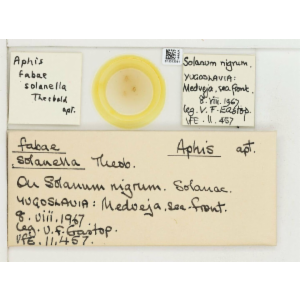 Aphis
fabae
solanella
Theobald
apt.
Solanum nigrum.
YUGOSLAVIA:
Medveja, sea front.
8. viii. 1967
leg. V. F. Eastop.
VFE. 11. 457
fabae Aphis apt.
solanella Theob.
On Solanum nigrum. Solanac.
YUGOSLAVIA: Medveja, sea front.
8. viii. 1967
leg. V. F. Eastop.
VFE. 11. 457.